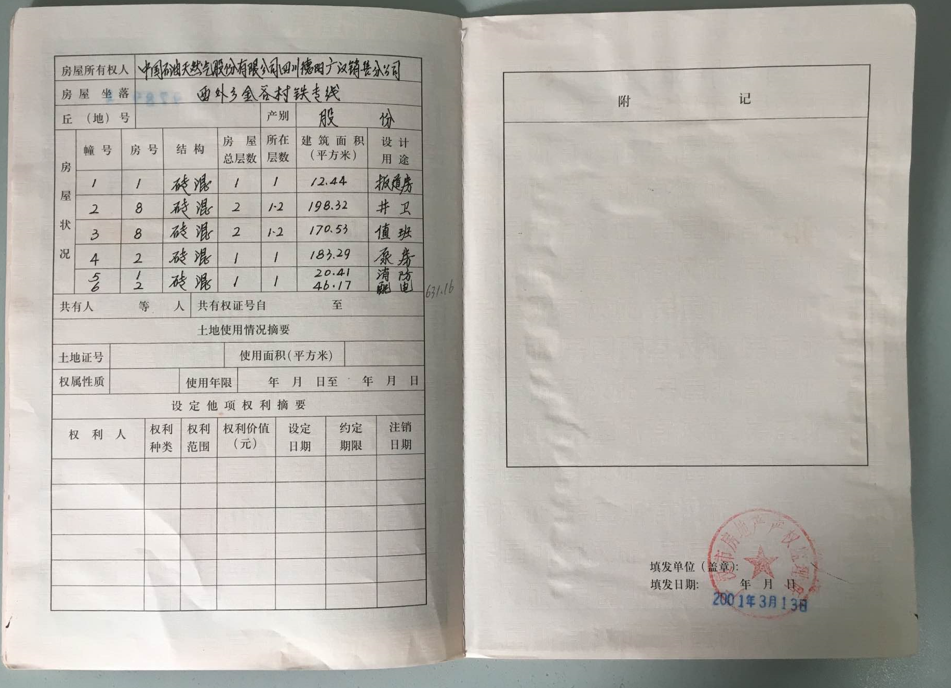 房屋所有权人 中国石油天然气股份有限公司四川德阳广汉销售分公司
房屋坐落 西外乡金谷村铁专线
丘（地）号 产别 股份
房屋状况
幢号 房号 结构 房屋总层数 所在层数 建筑面积（平方米） 设计用途
1 1 砖混 1 1 12.44 扳道房
2 8 砖混 2 1-2 198.32 井卫
3 8 砖混 2 1-2 170.53 值班
4 2 砖混 1 1 183.29 泵房
5 1 20.41 消防
砖混 1 1
6 2 46.17 配电
631.16
共有人 等 人 共有权证号自 至
土地使用情况摘要
土地证号 使用面积（平方米）
权属性质 使用年限 年 月 日至 年 月 日
设定他项权利摘要
权利人 权利种类 权利范围 权利价值（元） 设定日期 约定期限 注销日期
附记
市房地产产权
填发单位（盖章）：
填发日期： 年 月 日
2001年3月13日